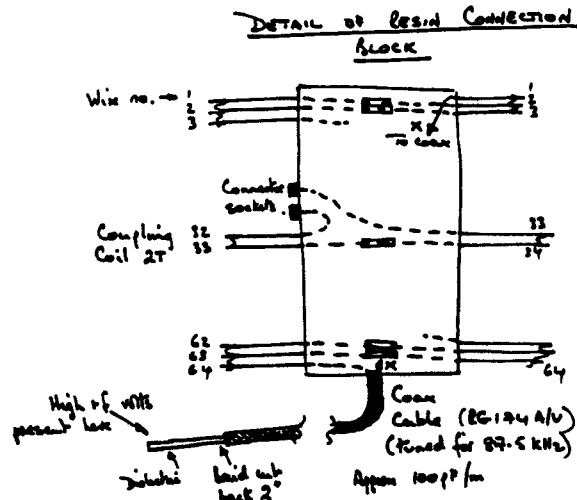 DETAIL OF RESIN CONNECTION
BLOCK
Wire no. → 1
2
3
1
2
3
x
To coax
Connector
sockets.
Coupling
Coil 2T
32
33
33
34
62
63
64
64
x
High rf volts
present here
Dielectric
braid cut
back 2"
Coax
Cable (RG174 A/U)
(tuned for 87.5 kHz)
Approx 100pF/m